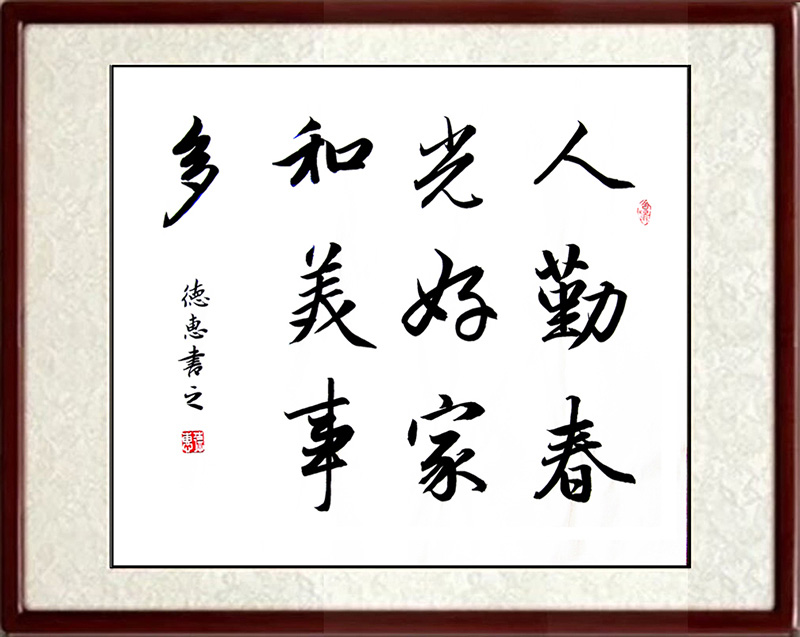 人勤春
光好家
和美事
多
德惠書之